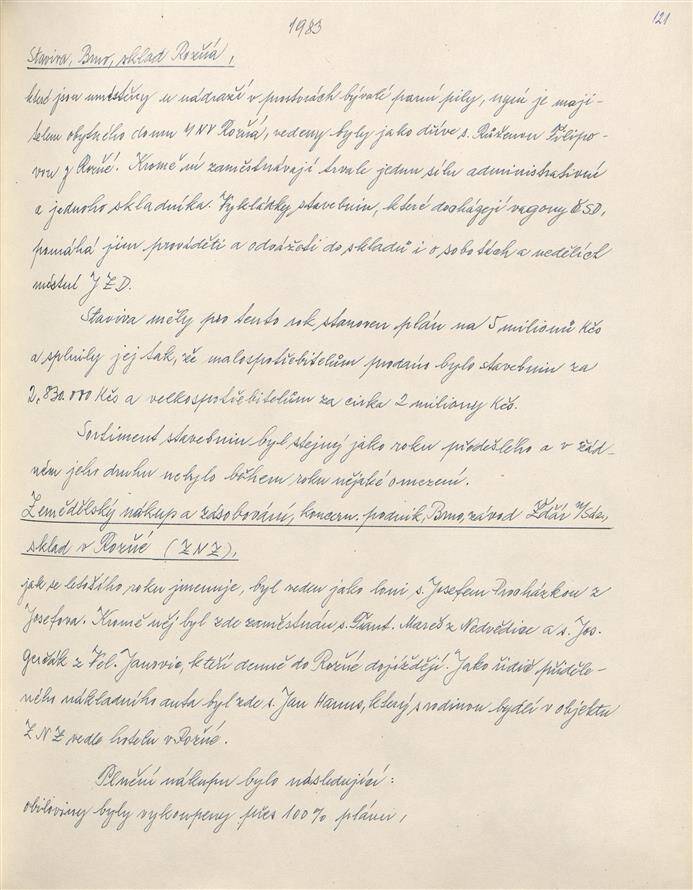 1983
121
Staviva, Brno, sklad Rožná,
které jsou umístěny u nádraží v prostorách bývalé parní pily, nyní je maji-
telem obytného domu MNV Rožná, vedeny byly jako dříve s. Růženou Filipo-
vou z Rožné. Kromě ní zaměstnávají trvale jednu sílu administrativní
a jednoho skladníka. Vykládky stavebnin, které docházejí vagony ČSD,
pomáhá jim prováděti a odvážeti do skladů i o sobotách a nedělích
místní JZD.
Staviva měly pro tento rok stanoven plán na 5 milionů Kčs
a splnily jej tak, že malospotřebitelům prodáno bylo stavebnin za
2,830.000 Kčs a velkospotřebitelům za cirka 2 miliony Kčs.
Sortiment stavebnin byl stejný jako roku předešlého a v žád-
ném jeho druhu nebylo během roku nějaké omezení.
Zemědělský nákup a zásobování, koncern. podnik, Brno, závod Žďár n/Sáz,
sklad v Rožné (ZNZ),
jak se letošího roku jmenuje, byl veden jako loni s. Josefem Procházkou z
Josefova. Kromě něj byl zde zaměstnán s. Frant. Mareš z Nedvědice a s. Jos.
z Vel. Janovic, kteří denně do Rožné dojíždějí. Jako řidič přiděle-
ného nákladního auta byl zde s. Jan Hanus, který s rodinou bydlí v objektu
ZNZ vedle hotelu v Rožné.
Plnění nákupu bylo následující:
obiloviny byly vykoupeny přes 100% plánu,